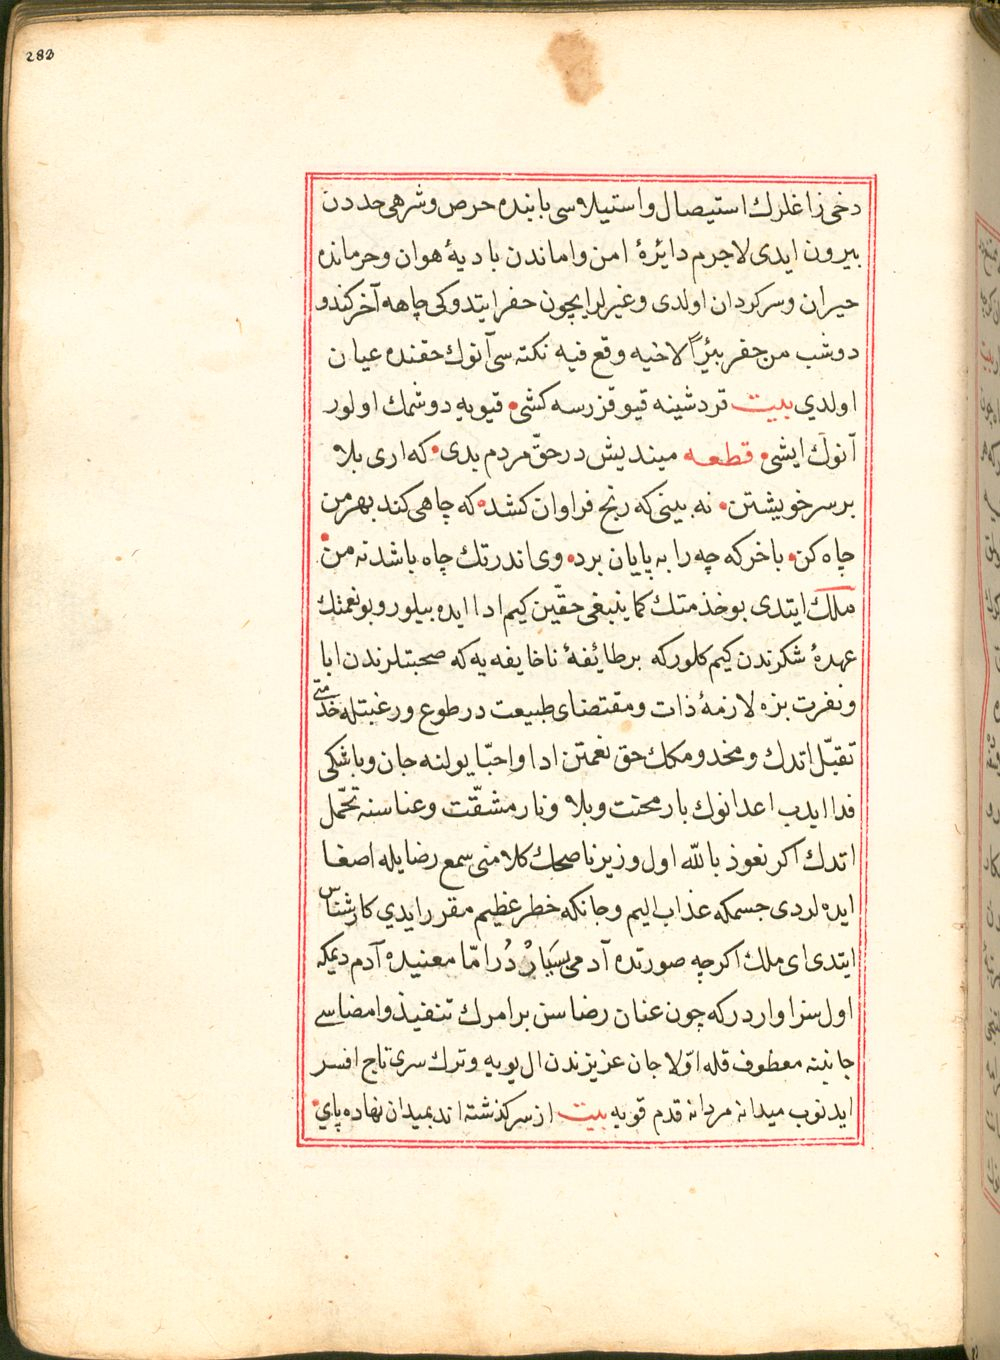 283
دخی زاغلرك استیصال و استیلاسی بابنده حرص و شرهی حددن
بیرون ایدی لاجرم دائرۀ امن و اماندن بادیۀ هوان و حرمانده
حیران و سرکردان اولدی و غیرلر ایچون حفر ایتدوکی چاهه آخر کندو
دوشب من حفر بیئرًا لاخیه وقع فیه نکته سی آنوك حقنده عیان
اولدي بیت قردشینه قیو قزرسه کشی قیویه دوشمك اولور
آنوك ایشی قطعه میندیش در حقّ مردم بدی که اری بلا
بر سر خویشتن نه بینی که رنج فراوان کشد که چاهی کند بهر من
چاه کن باخر که چه را به پایان برد وی اندر تك چاه باشد نه من
ملك ایتدی بو خذمتك کما ینبغی حقّین کیم ادا ایده بیلور و بو نعمتك
عهدۀ شکرندن کیم کلور که بر طائفۀ ناخایفه یه که صحبتلرندن ابا
و نفرت بزه لازمۀ ذات و مقتضای طبیعت در طوع و رغبتله خدمتی
تقبّل اتدك و مخدومکك حق نعمتن ادا و احبّا یولنه جان و باشکی
فدا ایدب اعدانوك بار محنت و بلا و نار مشقّت و عناسنه تحمّل
اتدك اکر نعوذ بالله اول وزیر ناصحك کلامنی سمع رضایله اصغا
ایده لردی جسمکه عذاب الیم و جانکه خطر عظیم مقرر ایدي کارشناس
ایتدی ای ملك اکرچه صورتده آدمی بسیار دُر امّا معنیده آدم دیمکه
اول سزاواردر که چون عنان رضاسن بر امرك تنفیذ و امضاسے
جانبنه معطوف قله اوّلا جان عزیزندن ال یویه و ترك سری تاج افسر
ایدنوب میدانه مردانه قدم قویه بیت از سر کذشته اند بمیدان نهاده پاي